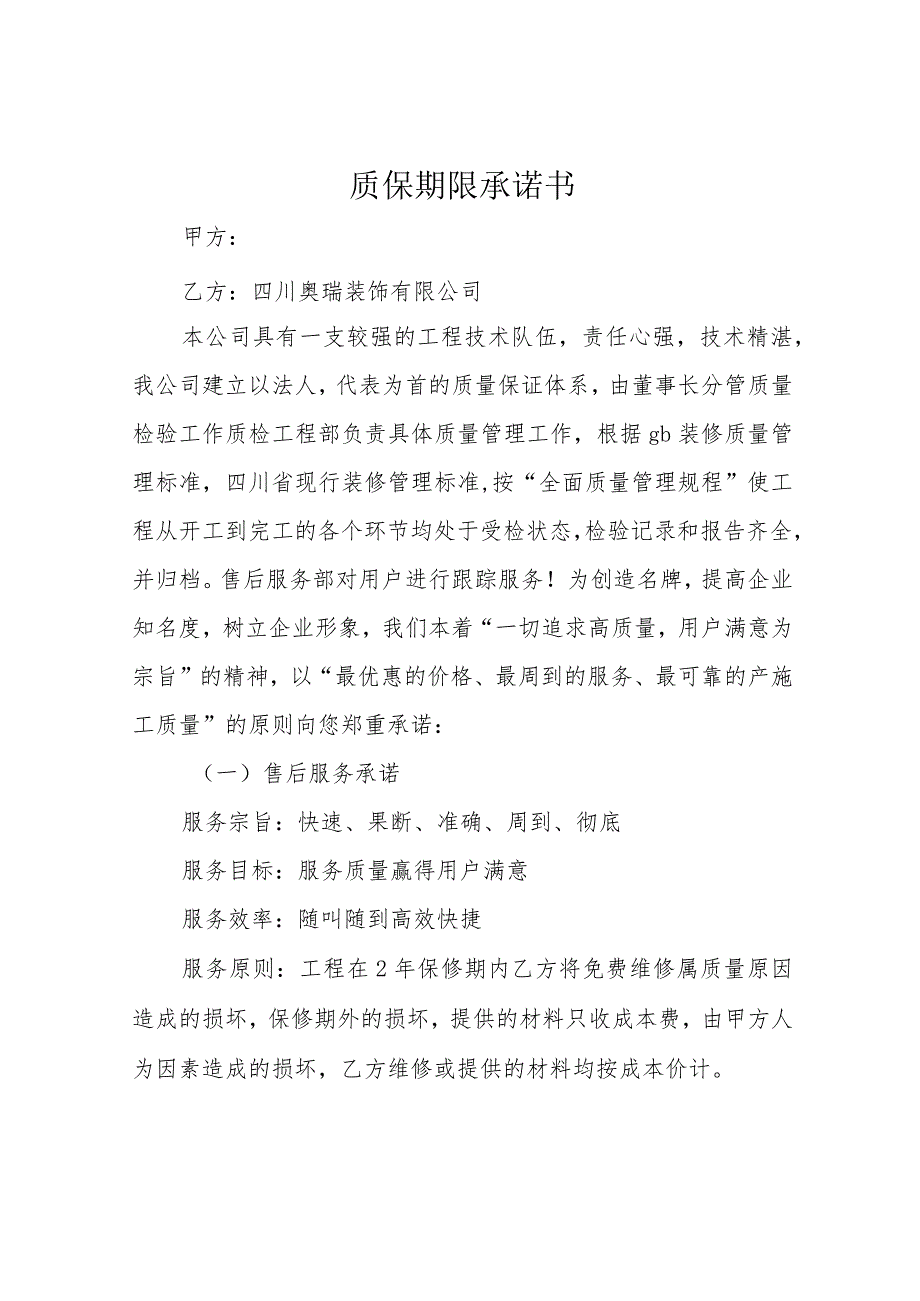 质保期限承诺书
甲方：
乙方：四川奥瑞装饰有限公司
本公司具有一支较强的工程技术队伍，责任心强，技术精湛，
我公司建立以法人，代表为首的质量保证体系，由董事长分管质量
检验工作质检工程部负责具体质量管理工作，根据gb装修质量管
理标准，四川省现行装修管理标准,按“全面质量管理规程”使工
程从开工到完工的各个环节均处于受检状态,检验记录和报告齐全,
并归档。售后服务部对用户进行跟踪服务！为创造名牌，提高企业
知名度，树立企业形象，我们本着“一切追求高质量，用户满意为
宗旨”的精神，以“最优惠的价格、最周到的服务、最可靠的产施
工质量”的原则向您郑重承诺：
（一）售后服务承诺
服务宗旨：快速、果断、准确、周到、彻底
服务目标：服务质量赢得用户满意
服务效率：随叫随到高效快捷
服务原则：工程在2年保修期内乙方将免费维修属质量原因
造成的损坏，保修期外的损坏，提供的材料只收成本费，由甲方人
为因素造成的损坏，乙方维修或提供的材料均按成本价计。